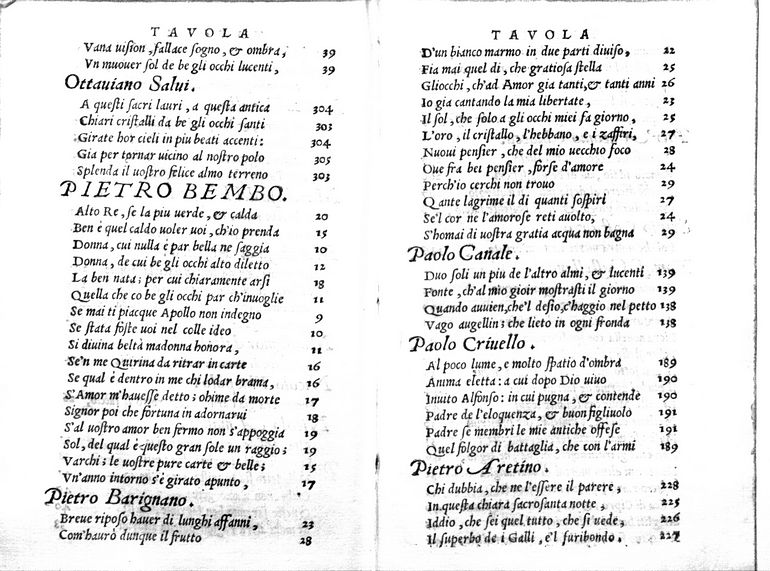 TAVOLA
Vana uision, fallace sogno, & ombra, 39
Vn muouer sol de be gli occhi lucenti, 39
Ottauiano Salui.
A questi sacri lauri, a questa antica 304
Chiari cristalli da be gli occhi santi 303
Girate hor cieli in piu beati accenti: 304
Gia per tornar uicino al nostro polo 305
Splenda il uostro felice almo terreno 303
PIETRO BEMBO.
Alto Re, se la piu uerde, & calda 20
Ben è quel caldo uoler uoi, ch'io prenda 15
Donna, cui nulla è par bella ne saggia 10
Donna, de cui be gli occhi alto diletto 12
La ben nata; per cui chiaramente arsi 18
Quella che co be gli occhi par ch'inuoglie 11
Se mai ti piacque Apollo non indegno 9
Se stata foste uoi nel colle ideo 10
Si diuina beltà madonna honora, 11
Se'n me Quirina da ritrar in carte 16
Se qual è dentro in me chi lodar brama, 16
S'Amor m'hauesse detto; ohime da morte 17
Signor poi che fortuna in adornarui 18
S'al uostro amor ben fermo non s'appoggia 19
Sol, del qual è questo gran sole un raggio; 19
Varchi; le uostre pure carte & belle; 15
Vn'anno intorno s'è girato apunto, 17
Pietro Barignano.
Breue riposo hauer di lunghi affanni, 23
Com'haurò dunque il frutto 28
TAVOLA
D'un bianco marmo in due parti diuiso, 22
Fia mai quel dì, che gratiosa stella 25
Gliocchi, ch'ad Amor gia tanti, & tanti anni 26
Io gia cantando la mia libertate, 23
Il sol, che solo a gli occhi miei fa giorno, 25
L'oro, il cristallo, l'hebbano, e i zaffiri, 27
Nuoui pensier, che del mio uecchio foco 28
Oue fra bei pensier, forse d'amore 24
Perch'io cerchi non trouo 29
Qante lagrime il dì quanti sospiri 27
Se'l cor ne l'amorose reti auolto, 24
S'homai di uostra gratia acqua non bagna 29
Paolo Canale.
Duo soli un piu de l'altro almi, & lucenti 139
Fonte, ch'al mio gioir mostrasti il giorno 139
Quando auuien, che'l desio, c'haggio nel petto 138
Vago augellin; che lieto in ogni fronda 138
Paolo Criuello.
Al poco lume, e molto spatio d'ombra 189
Anima eletta: a cui dopo Dio uiuo 190
Inuito Alfonso: in cui pugna, & contende 190
Padre de l'eloquenza, & buon figliuolo 191
Padre se membri le mie antiche offese 191
Quel folgor di battaglia, che con l'armi 189
Pietro Aretino.
Chi dubbia, che ne l'essere il parere, 228
In questa chiara sacrosanta notte, 225
Iddio, che sei quel tutto, che si uede, 226
Il superbo de i Galli, e'l furibondo. 227